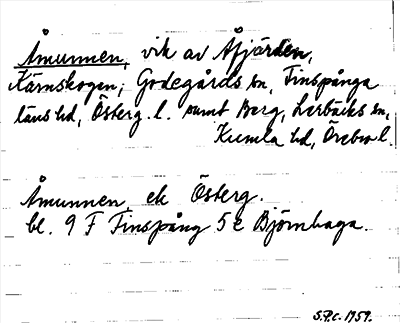 Åmunnen, vik av Åfjärden,
Kärnskogen, Godegårds sn, Finspånga
läns hd, Österg. l. samt Berg, Lerbäcks sn,
Kumla hd, Örebro l.
Åmunnen ek Österg.
bl. 9 F Finspång 5 e Björnhaga.
S.P.C. 1959.